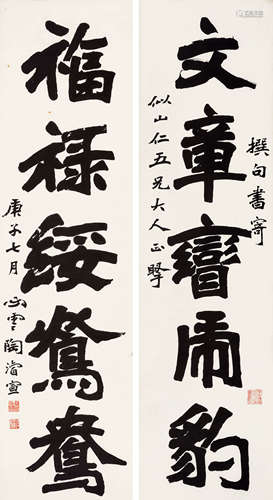 撰句書寄
文章變虎豹
似山仁五兄大人正
福禄綏鴛鴦
庚子七月 心雲陶濬宣